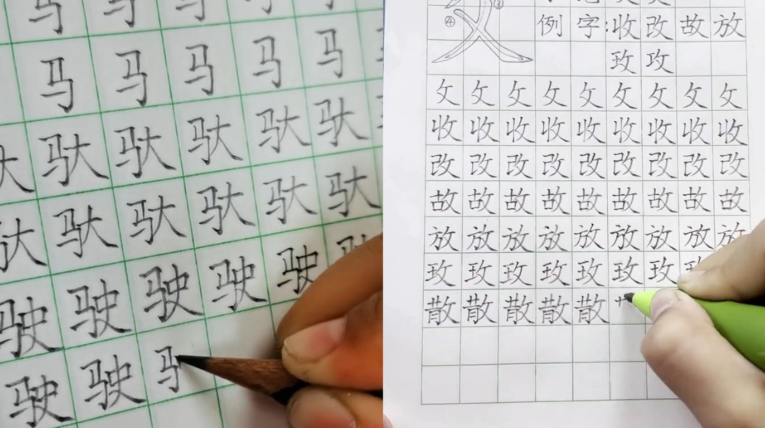 马马马马马
马马马马马
驮驮驮驮驮
驮驮驮驮驮
驶驶驶驶驶
驶驶
例字:收改故放
玫攻
攵攵攵攵攵攵攵攵攵
收收收收收收收收收
改改改改改改改改改
故故故故故故故故故
放放放放放放放放放
玫玫玫玫玫玫玫
散散散散散